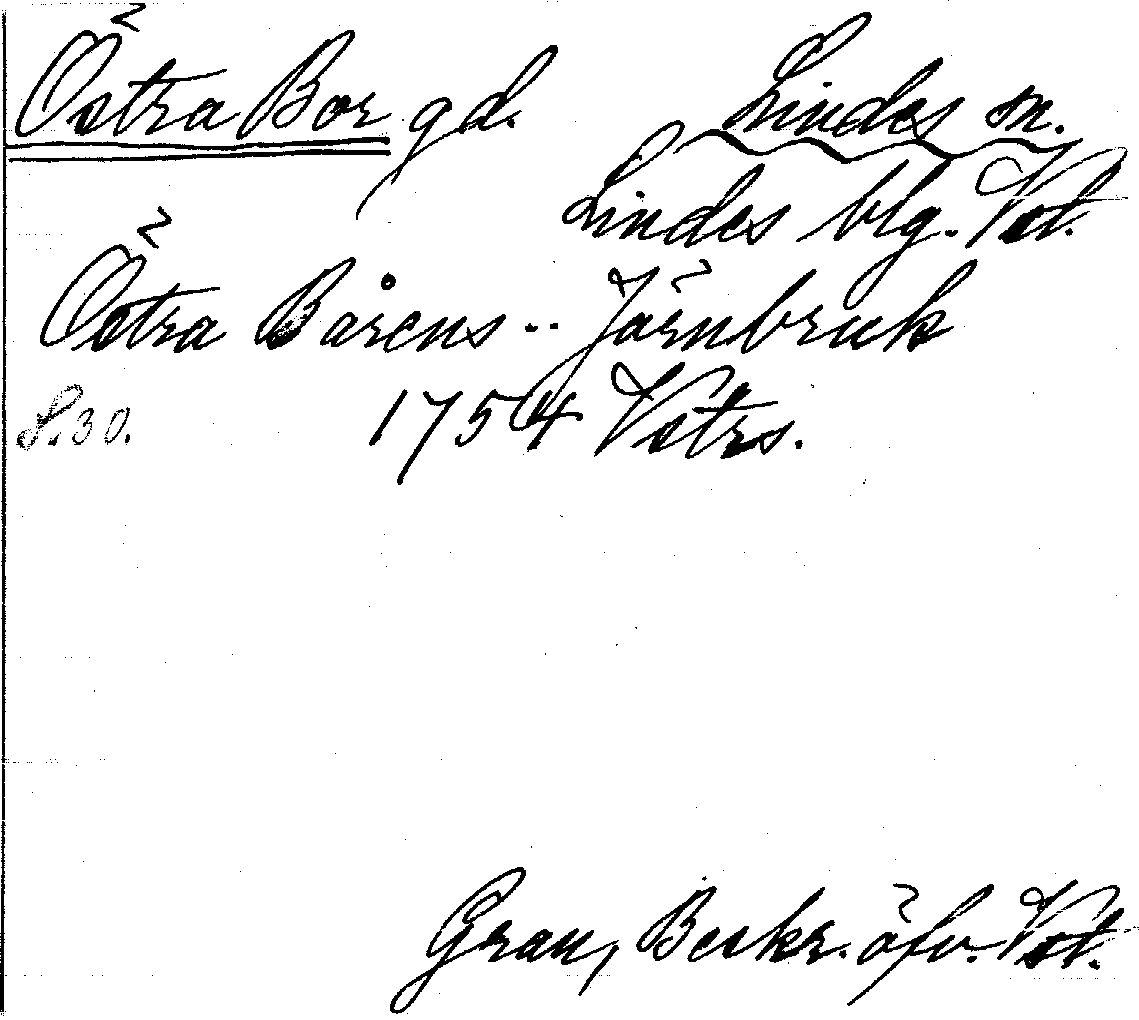 Östra Bor gd. Lindes sn.
Lindes blg. Vstl.
Östra Bårens .. Järnbruk
S. 30. 1754 Vstrs.
Grau, Beskr. öfv. Vstl.